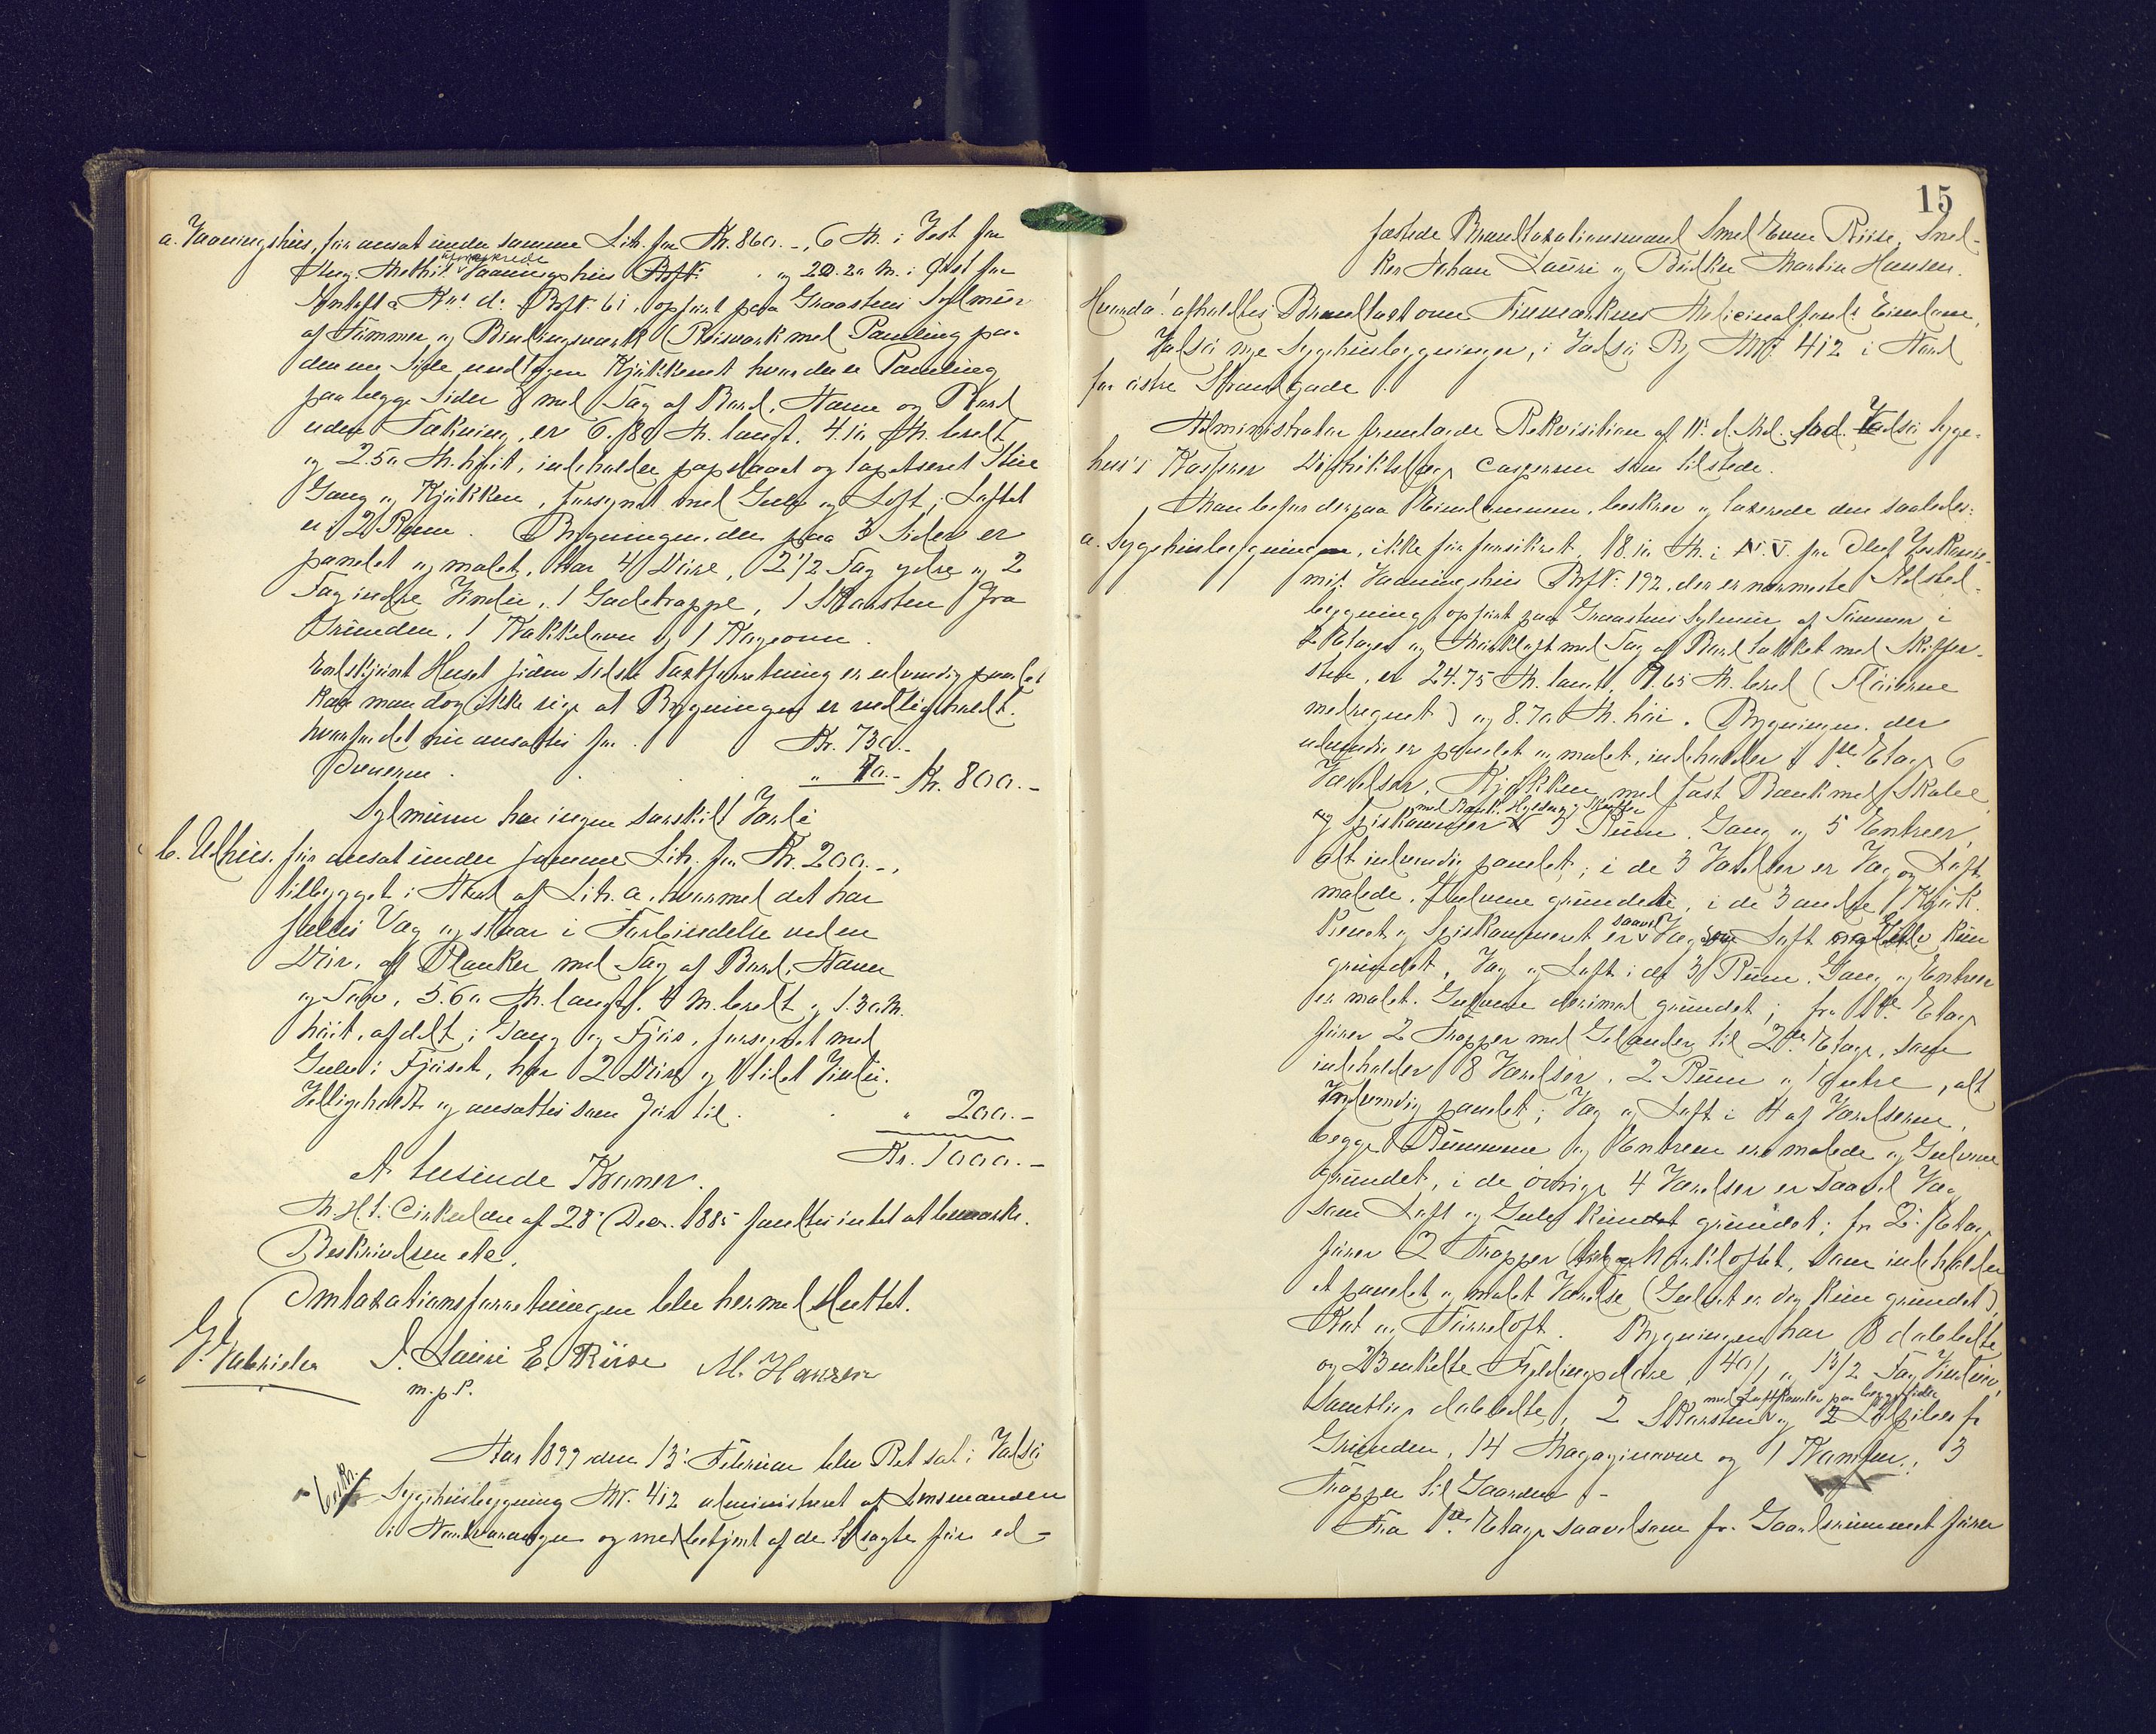 a. Vaaningshus, før ansat under samme Lit. for Kr. 860.-, 6 M. i Vest for
Aug. Mathis. afbrækkede Vaaningshus og 20.20 M. i Øst for
Brtf. N. 61, opført paa Graastens Sylmur
af Tømmer og Bindingsværk (Reisværk med Paneling paa
denne Side undtagen Kjøkkenet hvor der er Paneling
paa begge Sider) med Tag af Bord, Næver og Bord
uden Tækning, er 6.80 M. langt, 4.10 M. bredt
og 2.50 M. høit, indeholder papslaaet og tapetseret Stue
Gang og Kjøkken, forsynet med Gulv og Loft; Loftet
er i 2 Rum. Bygningen, der paa 3 Sider er
panelet og malet, har 4 Døre, 2 1/2 Fag ydre og 2
Fag indre Vindu, 1 Gadetrappe, 1 Skorsten fra
Grunden, 1 Kakkelovn og 1 Kogeovn.
Endskjønt Huset siden sidste Taxtforretning er udvendig panelet
kan man dog ikke sige at Bygningen er vedligeholdt.
hvorfor det nu ansattes for . Kr. 730.-
Ovnene . . . " 70.- Kr. 800.-
Sylmuren har ingen særskilt Værdi
b. Udhus, før ansat under samme Lit. for Kr. 200.-,
tilbygget i Nord af Lit. a. hvormed det har
fælles Væg og staar i Forbindelse ved en
Dør, af Planker med Tag af Bord, Næver
og Torv, 5.60 M. langt, 4 M. bredt og 1.30 M.
høit, afdelt i Gang og Fjøs, forsynet med
Gulv i Fjøset, har 2 Døre og 1 lidet Vindu.
Vedligeholdt og ansattes som før til . . " 200.-
Kr. 1000.-
Et tusinde Kroner.
M. H. t. Cirkulære af 28' Decr. 1885 fandtes intet at bemærke.
Beskrivelsen etc.
Omtaxationsforretningen blev hermed sluttet.
G. Gabrielsen J. Lauri E. Riise M. Hansen
m. p. P.
Aar 1899 den 13' Februar blev Ret sat i Vadsø
Sygehusbygning M.N. 412 administreret af Lensmanden
i Nordvaranger og medbetjent af de 3 opnævnte før ed-
15
fæstede Brandtaxationsmænd Smed Even Riise, Sned-
ker Johan Lauri og Bødker Martin Hansen.
Hvorda! afholdtes Brandtaxt over Finmarkens Medicinalfonds Eiendom,
Vadsø nye Sygehusbygninger, i Vadsø By M.N. 412 i Nord
for østre Strandgade.
Administrator fremlagde Rekvisition af 11' d. Md. fra Vadsø Syge-
hus's Kasserer Distriktslæge Caspersen som tilstede.
Man befor derpaa Eiendommen, beskrev og taxerede den saaledes:
a. Sygehusbygningen, ikke før forsikret, 18.10 M. i N.V. for
Vaaningshus Brtf. N. 192, der er nærmeste Nabo-
bygning, opført paa Graastens Sylmur af Tømmer i
2 Etager og Mørkloft med Tag af Bord tækket med Skifer-
sten, er 24.75 M. langt, 7.65 M. bred (Fløiene
medregnet) og 8.70 M. høi. Bygningen, der
udvendig er panelet og malet, indeholder i 1ste Etage 6
Værelser, Kjøkken med fast Bænk med Skabe,
og Spiskammer med Bænk, Hylder og Skuffer, 3 Rum, Gang og 5 Entreer,
alt indvendig panelet; i de 3 Værelser er Væg og Loft
malede, Gulvene grundede, i de 3 andre, Kjøk-
kenet og Spiskammeret er saavel Væg som Loft og Gulv kun
grundet, Væg og Loft i de 3 Rum, Gang og Entreer
er malet. Gulvene derimod grundet; fra 1ste Etage
fører 2 Trapper med Gelænder til 2den Etage, som
indeholder 8 Værelser, 2 Rum og 1 Entre, alt
indvendig panelet; Væg og Loft i 4 af Værelserne,
begge Rummene og Entreen ere malede og Gulvene
grundet, i de øvrige 4 Værelser er saavel Væg
som Loft og Gulv kun grundet; fra 2' Etage
fører 2 Trapper til Mørkloftet, som indeholder
et panelet og malet Værelse (Gulvet er dog kun grundet),
Kot og Tørreloft. Bygningen har 8 dobbelte
og 23 enkelte Fyldingsdøre, 40/1 og 13/2 Fag Vinduer,
samtlige dobbelte, 2 Skorstene med Luftkanaler paa begge Sider og 2 Luftpiber fra
Grunden, 14 Magasinovne og 1 Komfur; 3
Trapper til Gaarden.-
Fra 1ste Etage saavelsom fra Gaardsrummet fører